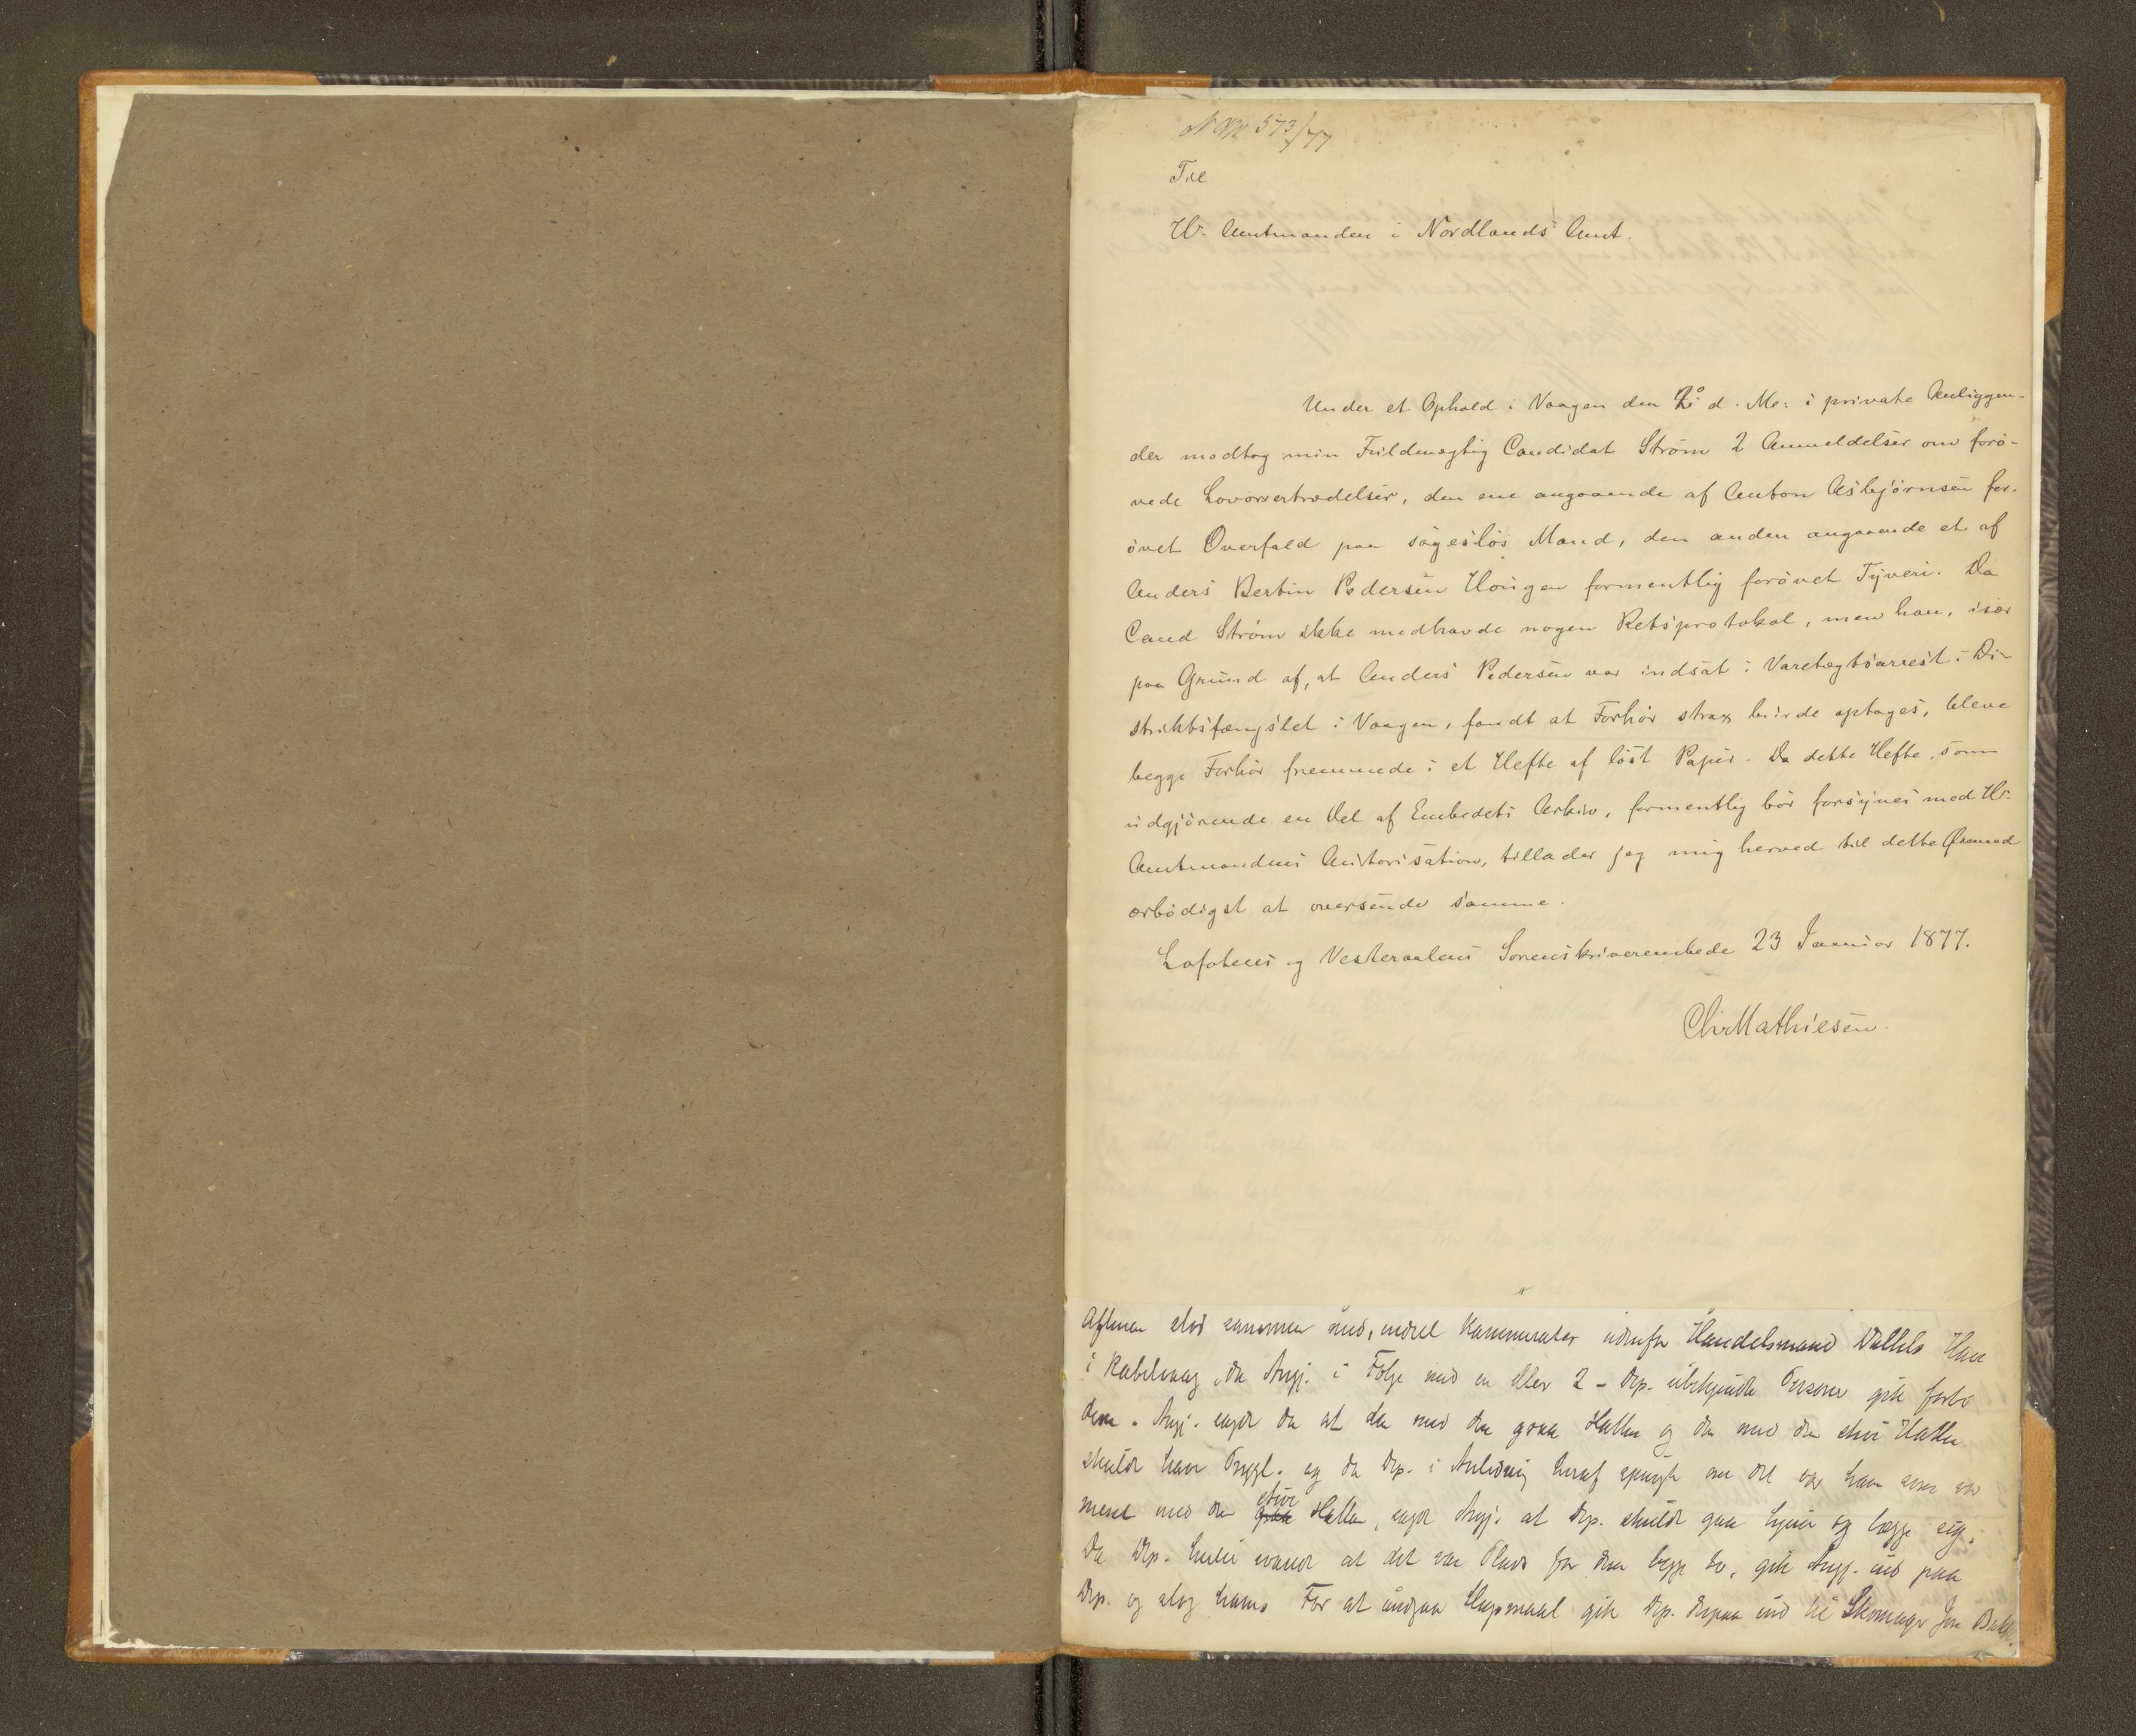 573/77
Til
Hr. Amtmanden i Nordlands Amt.
Under et Ophold i Vaagen den d. Me: i private Anliggen-
der modtog min Fuldmægtig Candidat Strøm 2 Anmeldelser om forø-
vede Lovovertrædelser, den ene angaaende af Anton Asbjørnsen for-
øvet Overfald paa sagesløs Mand, den anden angaaende et af
Anders Bertin Pedersen Hougen formentlig forøvet Tyveri. Da
Cand Strøm ikke medhavde nogen Retsprotokol, men han, især
paa Grund af, at Anders Pedersen var indsat i Varetægtsarrest i Di-
striktsfængslet i Vaagen, fandt at Forhør strax burde optages, bleve
begge Forhør fremmede i et Hefte af løst Papir. Da dette Hefte, som
udgjørende en Del af Embedets Arkiv, formentlig bør forsynes med Hr.
Amtmandens Autorisation, tillader jeg mig herved til dette Øiemed
ærbødigst at oversende samme.
Lofotens og Vesteraalens Sorenskriverembede 23 Januar 1877.
Chr Mathiesen.
Aftenen stod sammen med, endel Kammerater udenfor Handelsmand Hus
i Kabelvaag, da Angj. i Følge med en eller 2 - Dep. ubekjendte Personer gik forbi
dem. Angj. sagde da at den med den graa Hatten og den med den stive Hatten
skulde have Prygl. og da Dep. i Anledning heraf spurgte om det var ham som var
ment med den graa stive Hatten, sagde Angj. at Dep. skulde gaa hjem og lægge sig.
Da Dep. hertil svarede at det var Plads for dem begge to, gik Angj. ind paa
Dep. og slog ham. For at undgaa Slagsmaal gik Dep. derpaa ind til Skomager